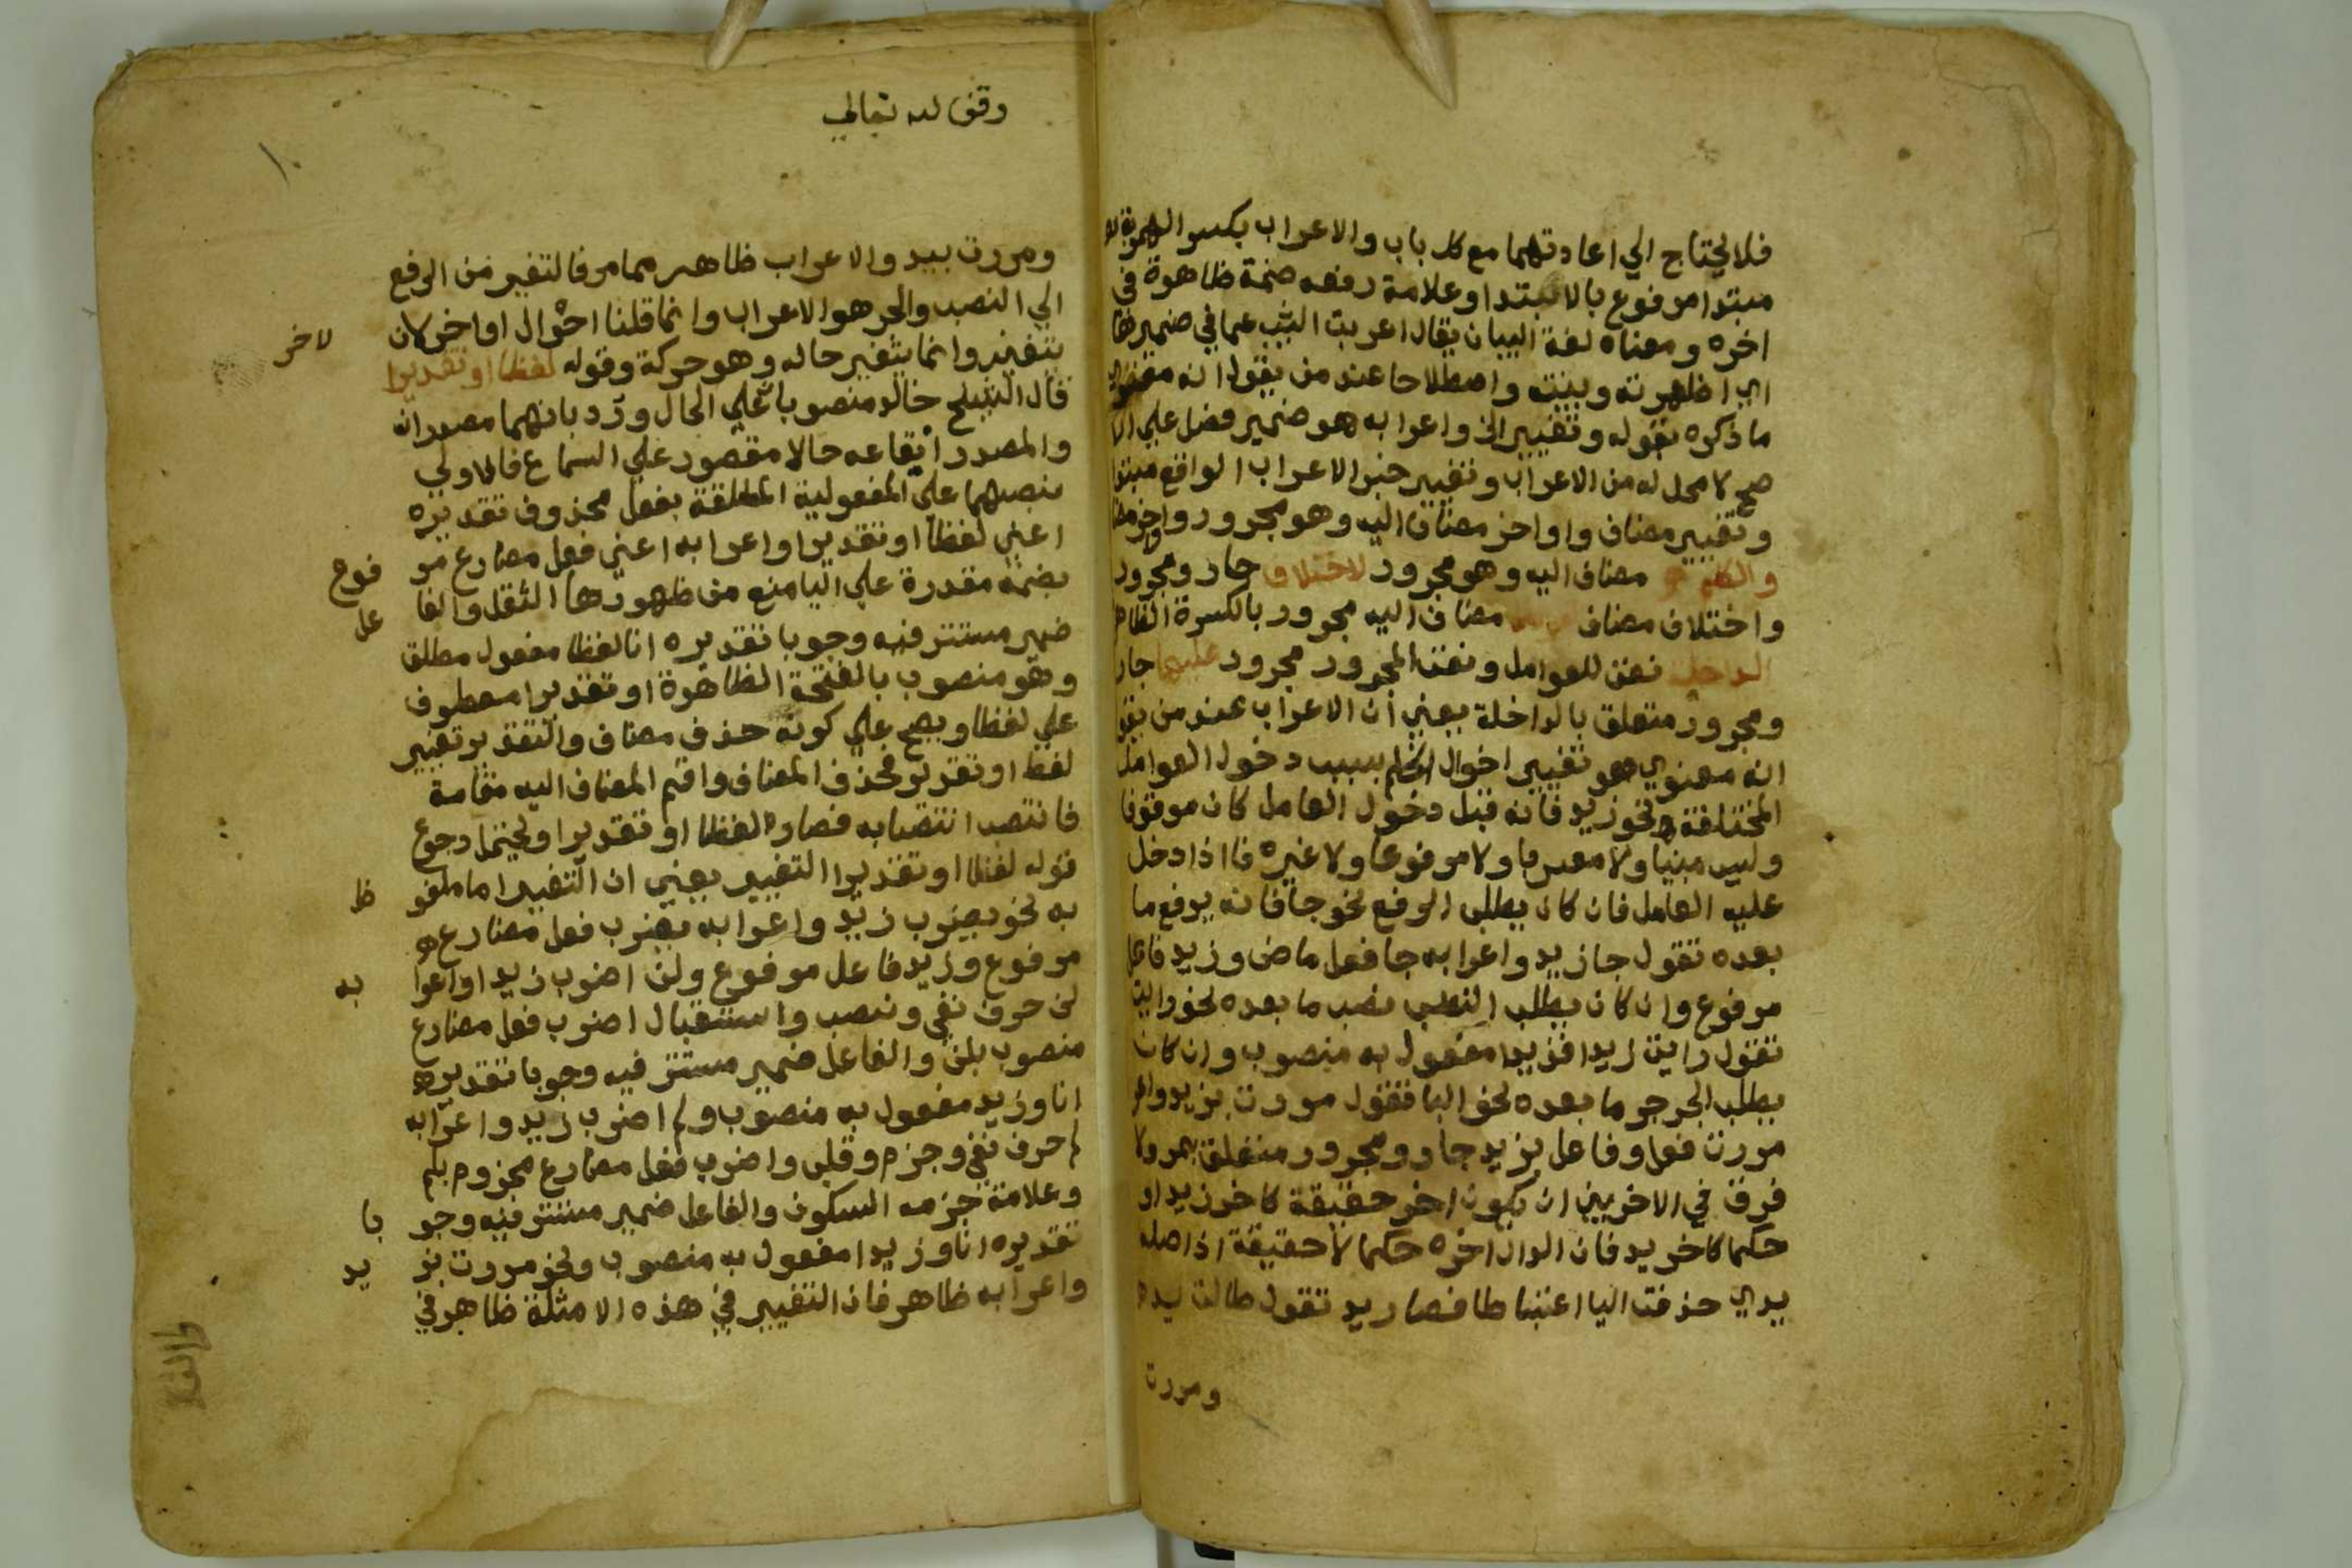 فلا يحتاج الي اعادتهما مع كل باب والاعراب بكسر الهمزة
مبتدا مرفوع بالابتدا وعلامة رفعه ضمة ظاهرة في
اخره ومعناه لغة البيان يقال اعربت عما في ضميرها
اي اظهرته وبينته واصطلاحا عند من يقول انه معنوي
ما ذكره بقوله وتغيير الخ واعرابه هو ضمير فصل علي
صح لا محل له من الاعراب وتغيير خبر الاعراب الواقع مبتدا
وتغيير مضاف واواخر مضاف اليه وهو مجرور واواخر
والكلم مضاف اليه وهو مجرور لاختلاف جار ومجرور
واختلاف مضاف مضاف اليه مجرور بالكسرة
الداخلة نعت للعوامل ونعت المجرور مجرور عليها جار
ومجرور متعلق بالداخلة يعني ان الاعراب عند من يقول
انه معنوي هو تغيير احوال الكلم بسبب دخول العوامل
المختلفة نحو زيد فانه قبل دخول العامل كان موقوفا
وليس مبنيا ولا معربا ولا مرفوعا ولا غيره فاذا دخل
عليه العامل فان كان يطلب الرفع نحو جا فانه يرفع ما
بعده تقول جا زيد واعرابه جا فعل ماض وزيد فاعل
مرفوع وان كان يطلب النصب نصب ما بعده نحو رايت
تقول رايت زيدا فزيدا مفعول به منصوب وان كان
يطلب الجر جر ما بعده نحو البا فتقول مررت بزيد
مررت فعل وفاعل بزيد جار ومجرور متعلق بمر ولا
فرق في الاخر بين ان يكون اخر حقيقة كاخر زيد او
حكما كاخر يد فان الدال اخره حكما لا حقيقة اذ اصله
يدي حذفت اليا اعتباطا فصار يد تقول طالت يد
ومررت
وقف لله تعالي
١٠
ومررت بيد والاعراب ظاهر مما مر فالتغير من الرفع
الي النصب والجر هو الاعراب وانما قلنا احوال اواخر لان
لاخر
يتغير وانما يتغير حاله وهو حركة وقوله لفظا او تقديرا
قال الشيخ خالد منصوبا علي الحال ورد بانهما مصدران
والمصدر ايقاعه حالا مقصور علي السماع فالاولي
نصبهما علي المفعولية المطلقة بفعل محذوف تقديره
اعني لفظا او تقديرا واعرابه اعني فعل مضارع مر
فوع
بضمة مقدرة علي اليا منع من ظهورها الثقل والفا
عل
ضمير مستتر فيه وجوبا تقديره انا لفظا مفعول مطلق
وهو منصوب بالفتحة الظاهرة او تقديرا معطوف
علي لفظا ويصح علي كونه حذف مضاف والتقدير تغيير
لفظ او تقدير فحذف المضاف واقيم المضاف اليه مقامه
فانتصب انتصابه فصار لفظا او تقديرا ويحتمل رجوع
قوله لفظا او تقديرا التغيير يعني ان التغيير اما ملفو
ظ
به نحو يضرب زيد واعرابه يضرب فعل مضارع
مرفوع وزيد فاعل مرفوع ولن اضرب زيدا واعرا
به
لن حرف نفي ونصب واستقبال اضرب فعل مضارع
منصوب بلن والفاعل ضمير مستتر فيه وجوبا تقديره
انا وزيد مفعول به منصوب ولم اضرب زيد واعرابه
لم حرف نفي وجزم وقلب واضرب فعل مضارع مجزوم بلم
وعلامة جزمه السكون والفاعل ضمير مستتر فيه وجو
با
تقديره انا وزيدا مفعول به منصوب ونحو مررت بز
يد
واعرابه ظاهر فان التغيير في هذه الامثلة ظاهر في